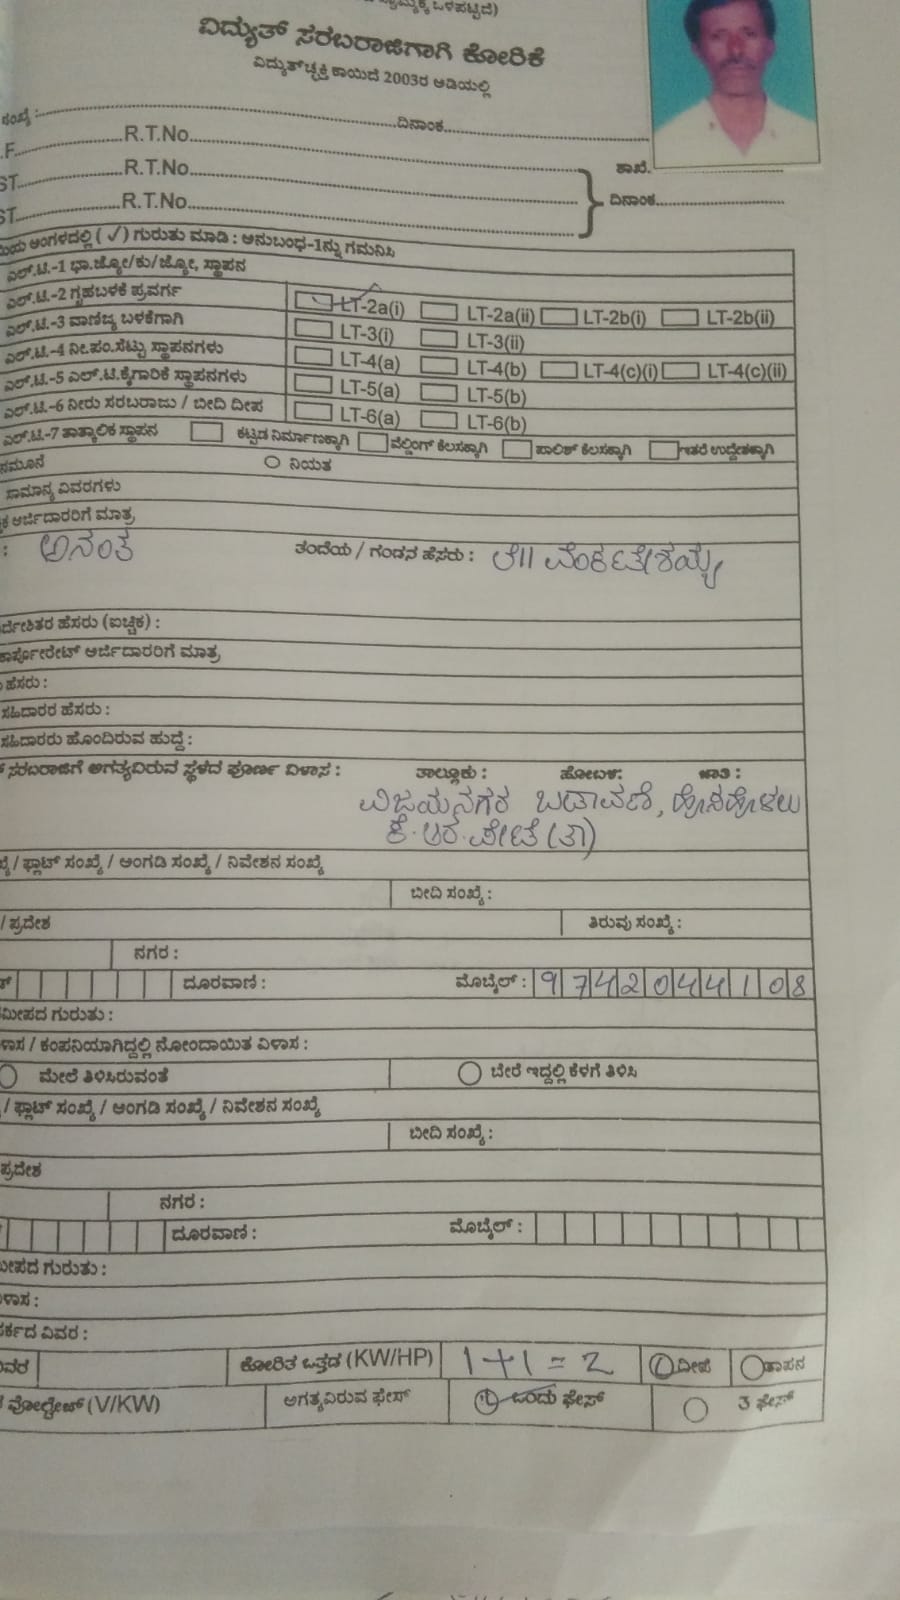 ವಿದ್ಯುತ್ ಸರಬರಾಜಿಗಾಗಿ ಕೋರಿಕೆ
ವಿದ್ಯುತ್‌ಚ್ಛಕ್ತಿ ಕಾಯಿದೆ 2003ರ ಅಡಿಯಲ್ಲಿ
ಸಂಖ್ಯೆ : ದಿನಾಂಕ
R.T.No.
ಶಾಖೆ.
R.T.No
ದಿನಾಂಕ
R.T.No
ಅಂಗಳದಲ್ಲಿ ( ✓ ) ಗುರುತು ಮಾಡಿ : ಅನುಬಂಧ-1ನ್ನು ಗಮನಿಸಿ
ಎಲ್.ಟಿ.-1 ಭಾ.ಜ್ಯೋ/ಕು/ಜ್ಯೋ, ಸ್ಥಾಪನ
ಎಲ್.ಟಿ.-2 ಗೃಹಬಳಕೆ ಪ್ರವರ್ಗ LT-2a(i) LT-2a(ii) LT-2b(i) LT-2b(ii)
ಎಲ್.ಟಿ.-3 ವಾಣಿಜ್ಯ ಬಳಕೆಗಾಗಿ LT-3(i) LT-3(ii)
ಎಲ್.ಟಿ.-4 ನೀ.ಪಂ.ಸೆಟ್ಟು ಸ್ಥಾಪನಗಳು LT-4(a) LT-4(b) LT-4(c)(i) LT-4(c)(ii)
ಎಲ್.ಟಿ.-5 ಎಲ್.ಟಿ.ಕೈಗಾರಿಕೆ ಸ್ಥಾಪನಗಳು LT-5(a) LT-5(b)
ಎಲ್.ಟಿ.-6 ನೀರು ಸರಬರಾಜು / ಬೀದಿ ದೀಪ LT-6(a) LT-6(b)
ಎಲ್.ಟಿ.-7 ತಾತ್ಕಾಲಿಕ ಸ್ಥಾಪನ ಕಟ್ಟಡ ನಿರ್ಮಾಣಕ್ಕಾಗಿ ವೆಲ್ಡಿಂಗ್ ಕೆಲಸಕ್ಕಾಗಿ ಪಾಲಿಶ್ ಕೆಲಸಕ್ಕಾಗಿ ಇತರೆ ಉದ್ದೇಶಕ್ಕಾಗಿ
ನಮೂನೆ ನಿಯತ
ಸಾಮಾನ್ಯ ವಿವರಗಳು
ಅರ್ಜಿದಾರರಿಗೆ ಮಾತ್ರ
: ಅನಂತ ತಂದೆಯ / ಗಂಡನ ಹೆಸರು : ಲೇ|| ವೆಂಕಟೇಶಯ್ಯ
ಹೆಸರು (ಐಚ್ಛಿಕ) :
ಅರ್ಜಿದಾರರಿಗೆ ಮಾತ್ರ
ಹೆಸರು :
ಸಹಿದಾರರ ಹೆಸರು :
ಸಹಿದಾರರು ಹೊಂದಿರುವ ಹುದ್ದೆ :
ಸರಬರಾಜಿಗೆ ಅಗತ್ಯವಿರುವ ಸ್ಥಳದ ಪೂರ್ಣ ವಿಳಾಸ : ತಾಲ್ಲೂಕು : ಹೋಬಳಿ: ಜಾತಿ :
ವಿಜಯನಗರ ಬಡಾವಣೆ, ಹೊಸಹೊಳಲು
ಕೆ.ಆರ್.ಪೇಟೆ (ತಾ)
/ ಫ್ಲಾಟ್ ಸಂಖ್ಯೆ / ಅಂಗಡಿ ಸಂಖ್ಯೆ / ನಿವೇಶನ ಸಂಖ್ಯೆ
ಬೀದಿ ಸಂಖ್ಯೆ :
/ ಪ್ರದೇಶ ತಿರುವು ಸಂಖ್ಯೆ :
ನಗರ :
ದೂರವಾಣಿ : ಮೊಬೈಲ್ : 9742044108
ಗುರುತು :
/ ಕಂಪನಿಯಾಗಿದ್ದಲ್ಲಿ ನೋಂದಾಯಿತ ವಿಳಾಸ :
ಮೇಲೆ ತಿಳಿಸಿರುವಂತೆ ಬೇರೆ ಇದ್ದಲ್ಲಿ ಕೆಳಗೆ ತಿಳಿಸಿ
/ ಫ್ಲಾಟ್ ಸಂಖ್ಯೆ / ಅಂಗಡಿ ಸಂಖ್ಯೆ / ನಿವೇಶನ ಸಂಖ್ಯೆ
ಬೀದಿ ಸಂಖ್ಯೆ :
ಪ್ರದೇಶ
ನಗರ :
ದೂರವಾಣಿ : ಮೊಬೈಲ್ :
ಗುರುತು :
ವಿವರ :
ಕೋರಿತ ಒತ್ತಡ (KW/HP) 1+1=2 ದೀಪ ತಾಪನ
ವೋಲ್ಟೇಜ್ (V/KW) ಅಗತ್ಯವಿರುವ ಫೇಸ್ ಒಂದು ಫೇಸ್ 3 ಫೇಸ್